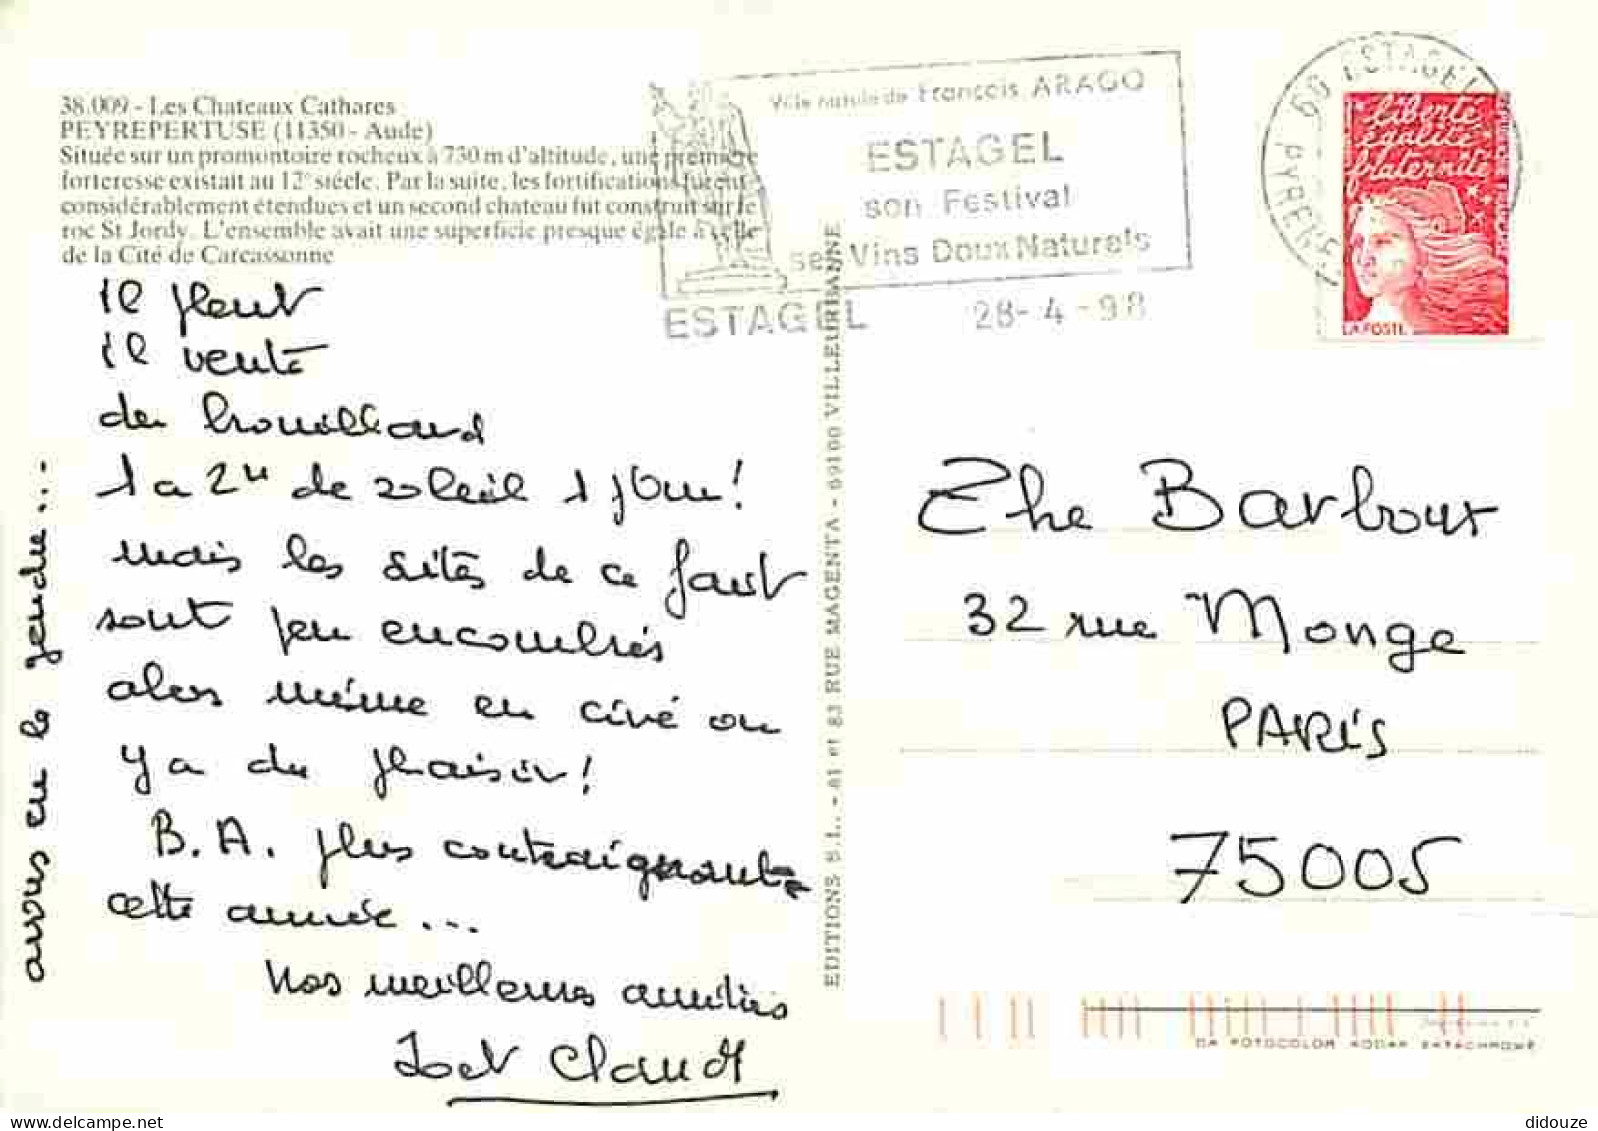 38.009 - Les Chateaux Cathares
PEYREPERTUSE (11350 - Aude)
Située sur un promontoire rocheux à 730 m d'altitude, une première
forteresse existait au 12e siècle. Par la suite, les fortifications furent
considérablement étendues et un second chateau fut construit sur le
roc St Jordy. L'ensemble avait une superficie presque égale à celle
de la Cité de Carcassonne
il pleut
il vente
du brouillard
1 a 2H de soleil 1 jour!
mais les sites de ce fait
sont peu encombrés
alors même en ciré on
y a du plaisir!
B.A. plus contraignante
cette année...
Nos meilleures amitiés
Joet Claudt
avous en le jendu...
EDITIONS S.L. - 81 et 83 RUE MAGENTA - 69100 VILLEURBANNE
Ville natale de François ARAGO
ESTAGEL
son Festival
ses Vins Doux Naturels
ESTAGEL 28-4-98
66 ESTAGEL
PYRENEES
liberté
égalité
fraternité
LA POSTE
Ehe Barboux
32 rue Monge
PARIS
75005
didouze